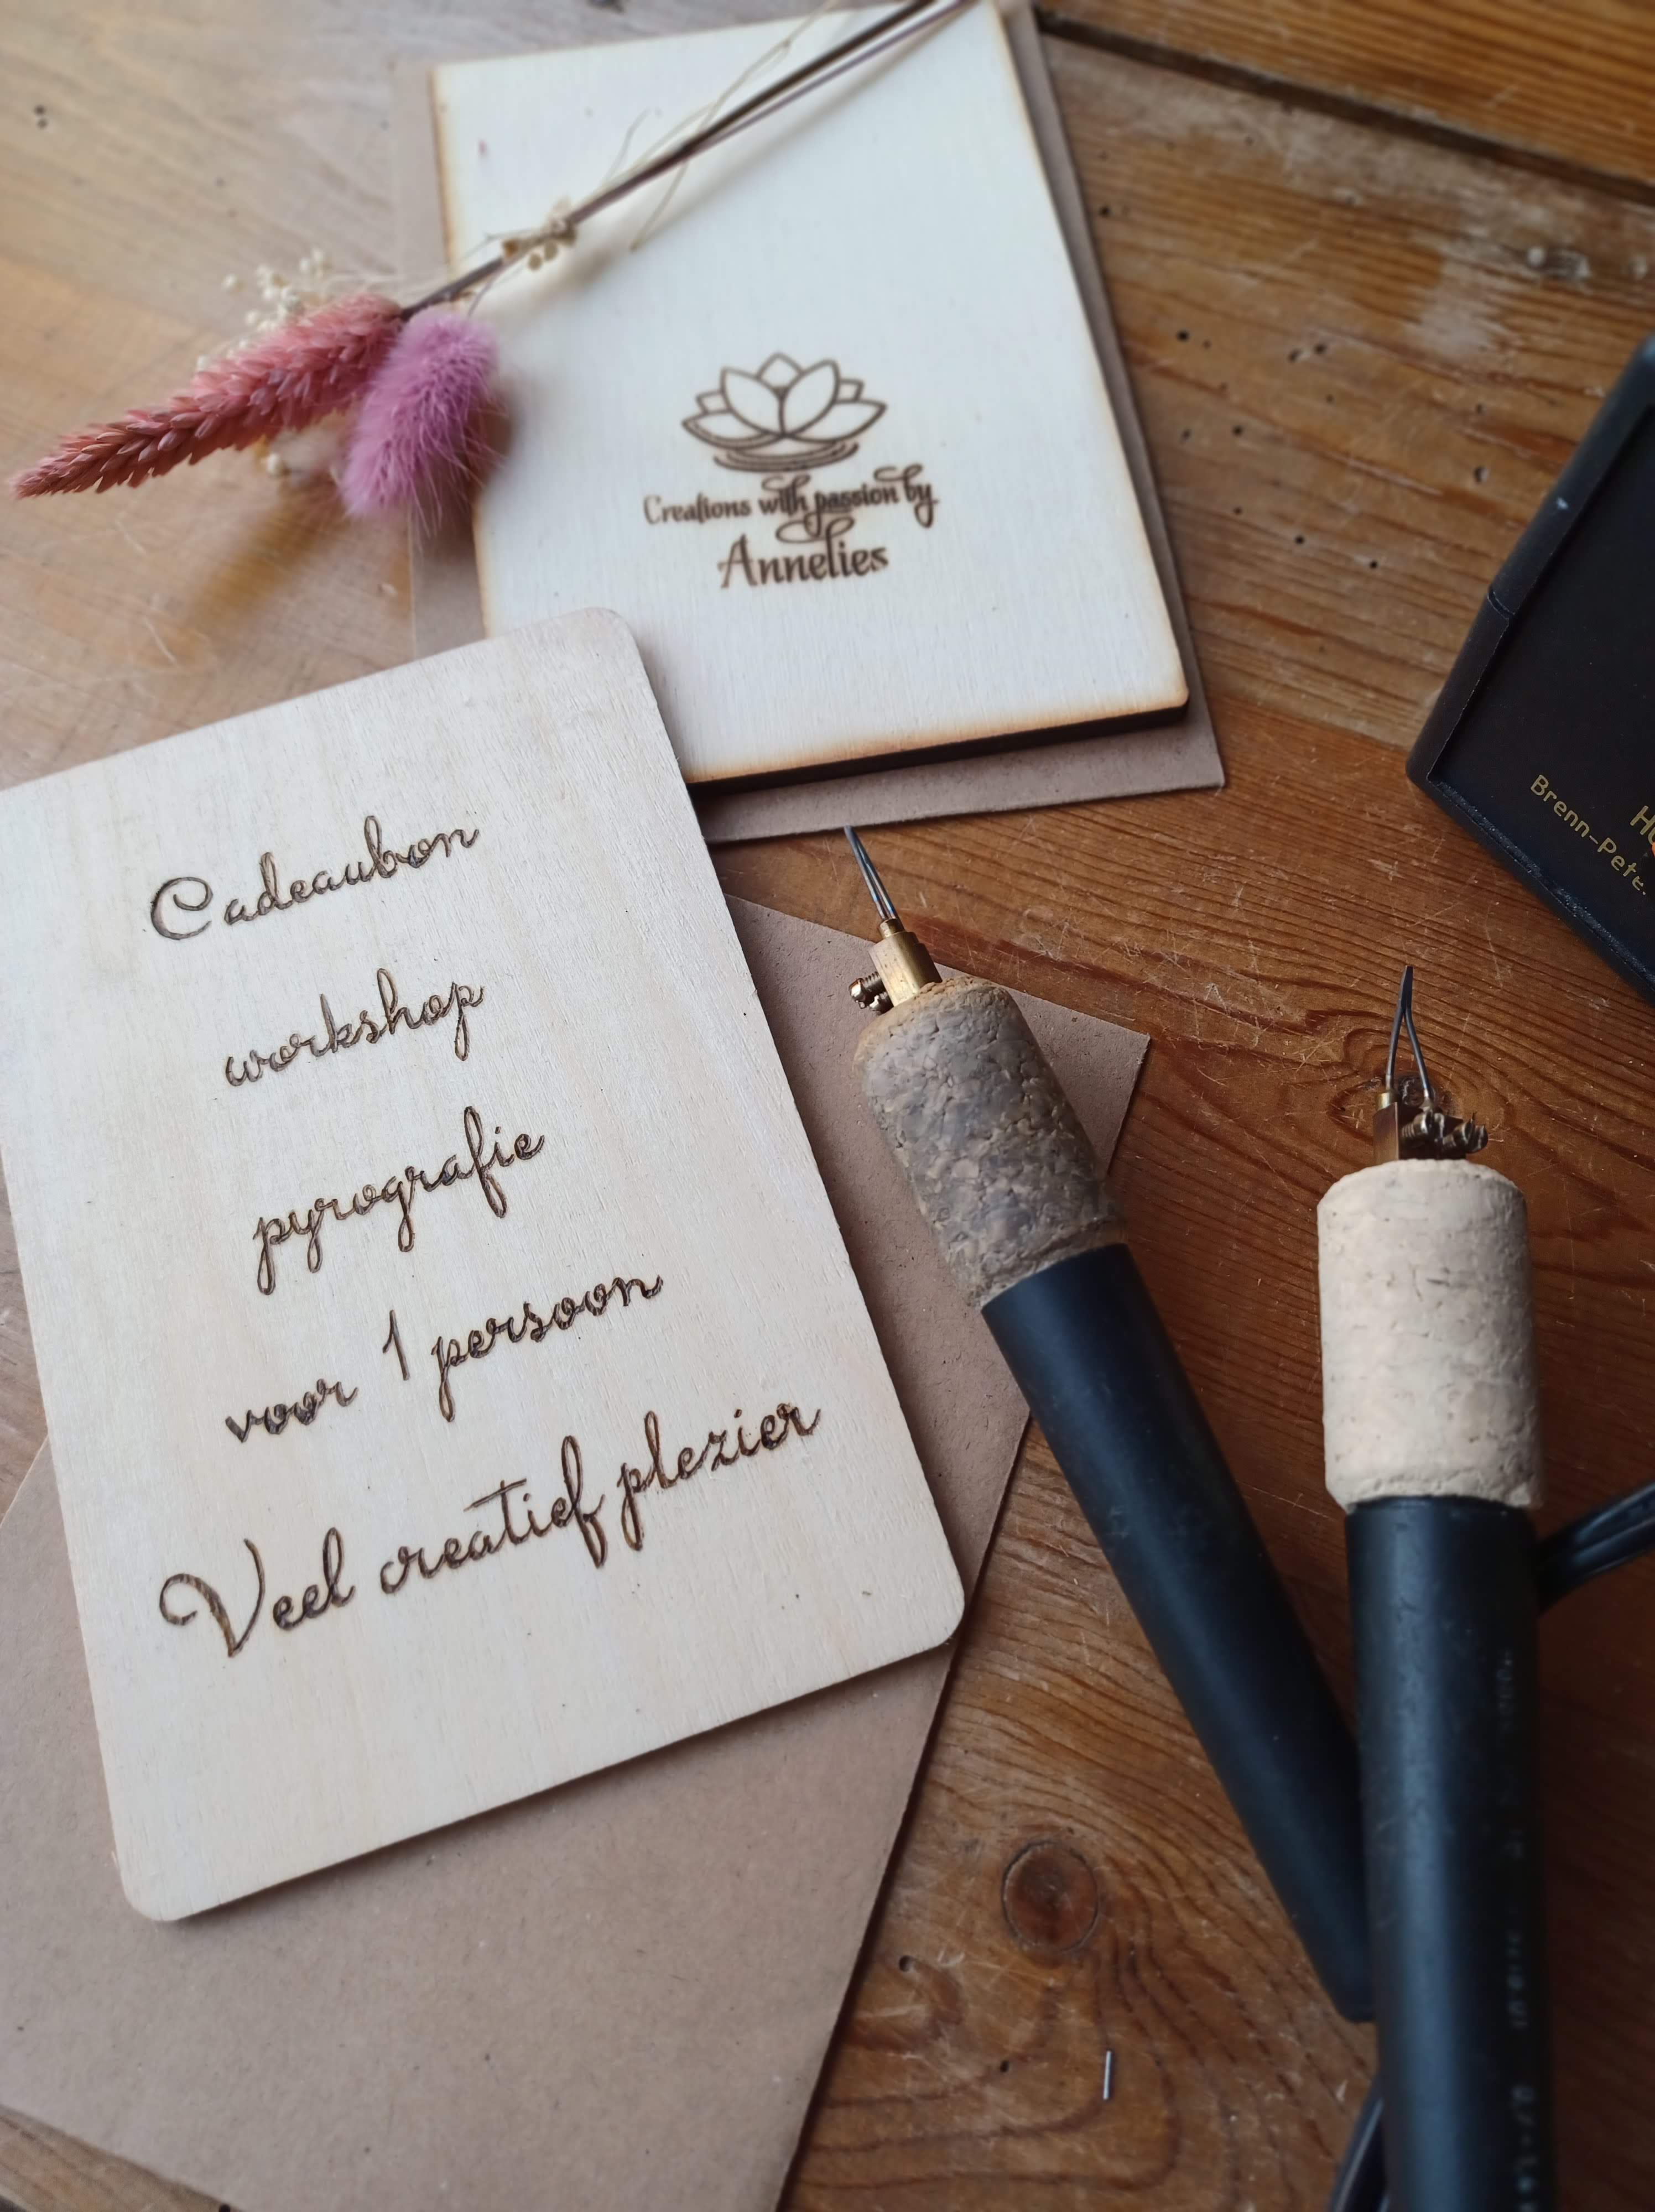 Creations with passion by
Annelies
Cadeaubon
workshop
pyrografie
voor 1 persoon
Veel creatief plezier